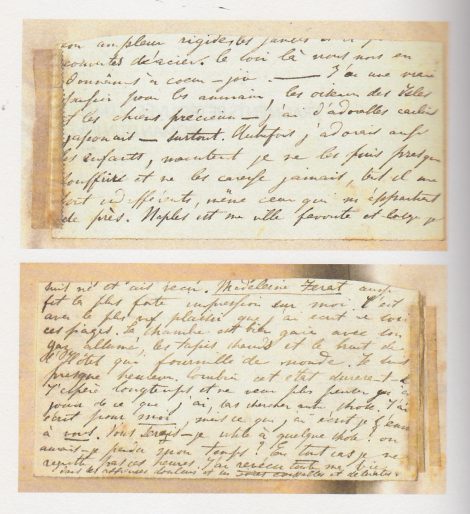 son ampleur rigide, les et
couvertes d'acier. Le voici là nous nous en
donnâmes à coeur-joie. —— J'ai une vraie
passion pour les animaux, les oiseaux des îles
et les chiens précieux — j'ai d'adorables carlins
japonais — surtout. Autrefois j'adorais aussi
les enfants, maintent je ne les puis presque
souffrir et ne les caresse jamais, il me
sont indifférents, même ceux qui m'appartient
de près. Naples est ma ville favorite et je
suis né et ai vécu. Madeleine Ferat aussi
fit la plus forte impression sur moi. C'est
avec le plus vif plaisir que j'ai écrit
ces pages. La chambre est bien gaie avec son
gaz allumé, les tapis chauds et le bruit de
l'Hôtel qui fourmille de monde. Je suis
presque heureux. Combien cet état durera-t-il
J'espère longtemps et ne veux plus penser qu'à
jouir de ce que j'ai, sans chercher autre chose. J'ai
écrit pour moi, mais ce que j'ai écrit je l'envoie
à vous. Vous serais-je utile à quelque chose? ou
aurais-je perdu mon temps? En tout cas je ne
regrette pas ces heures. J'ai revécu toute ma vie
dans ses douleurs et ses joies et